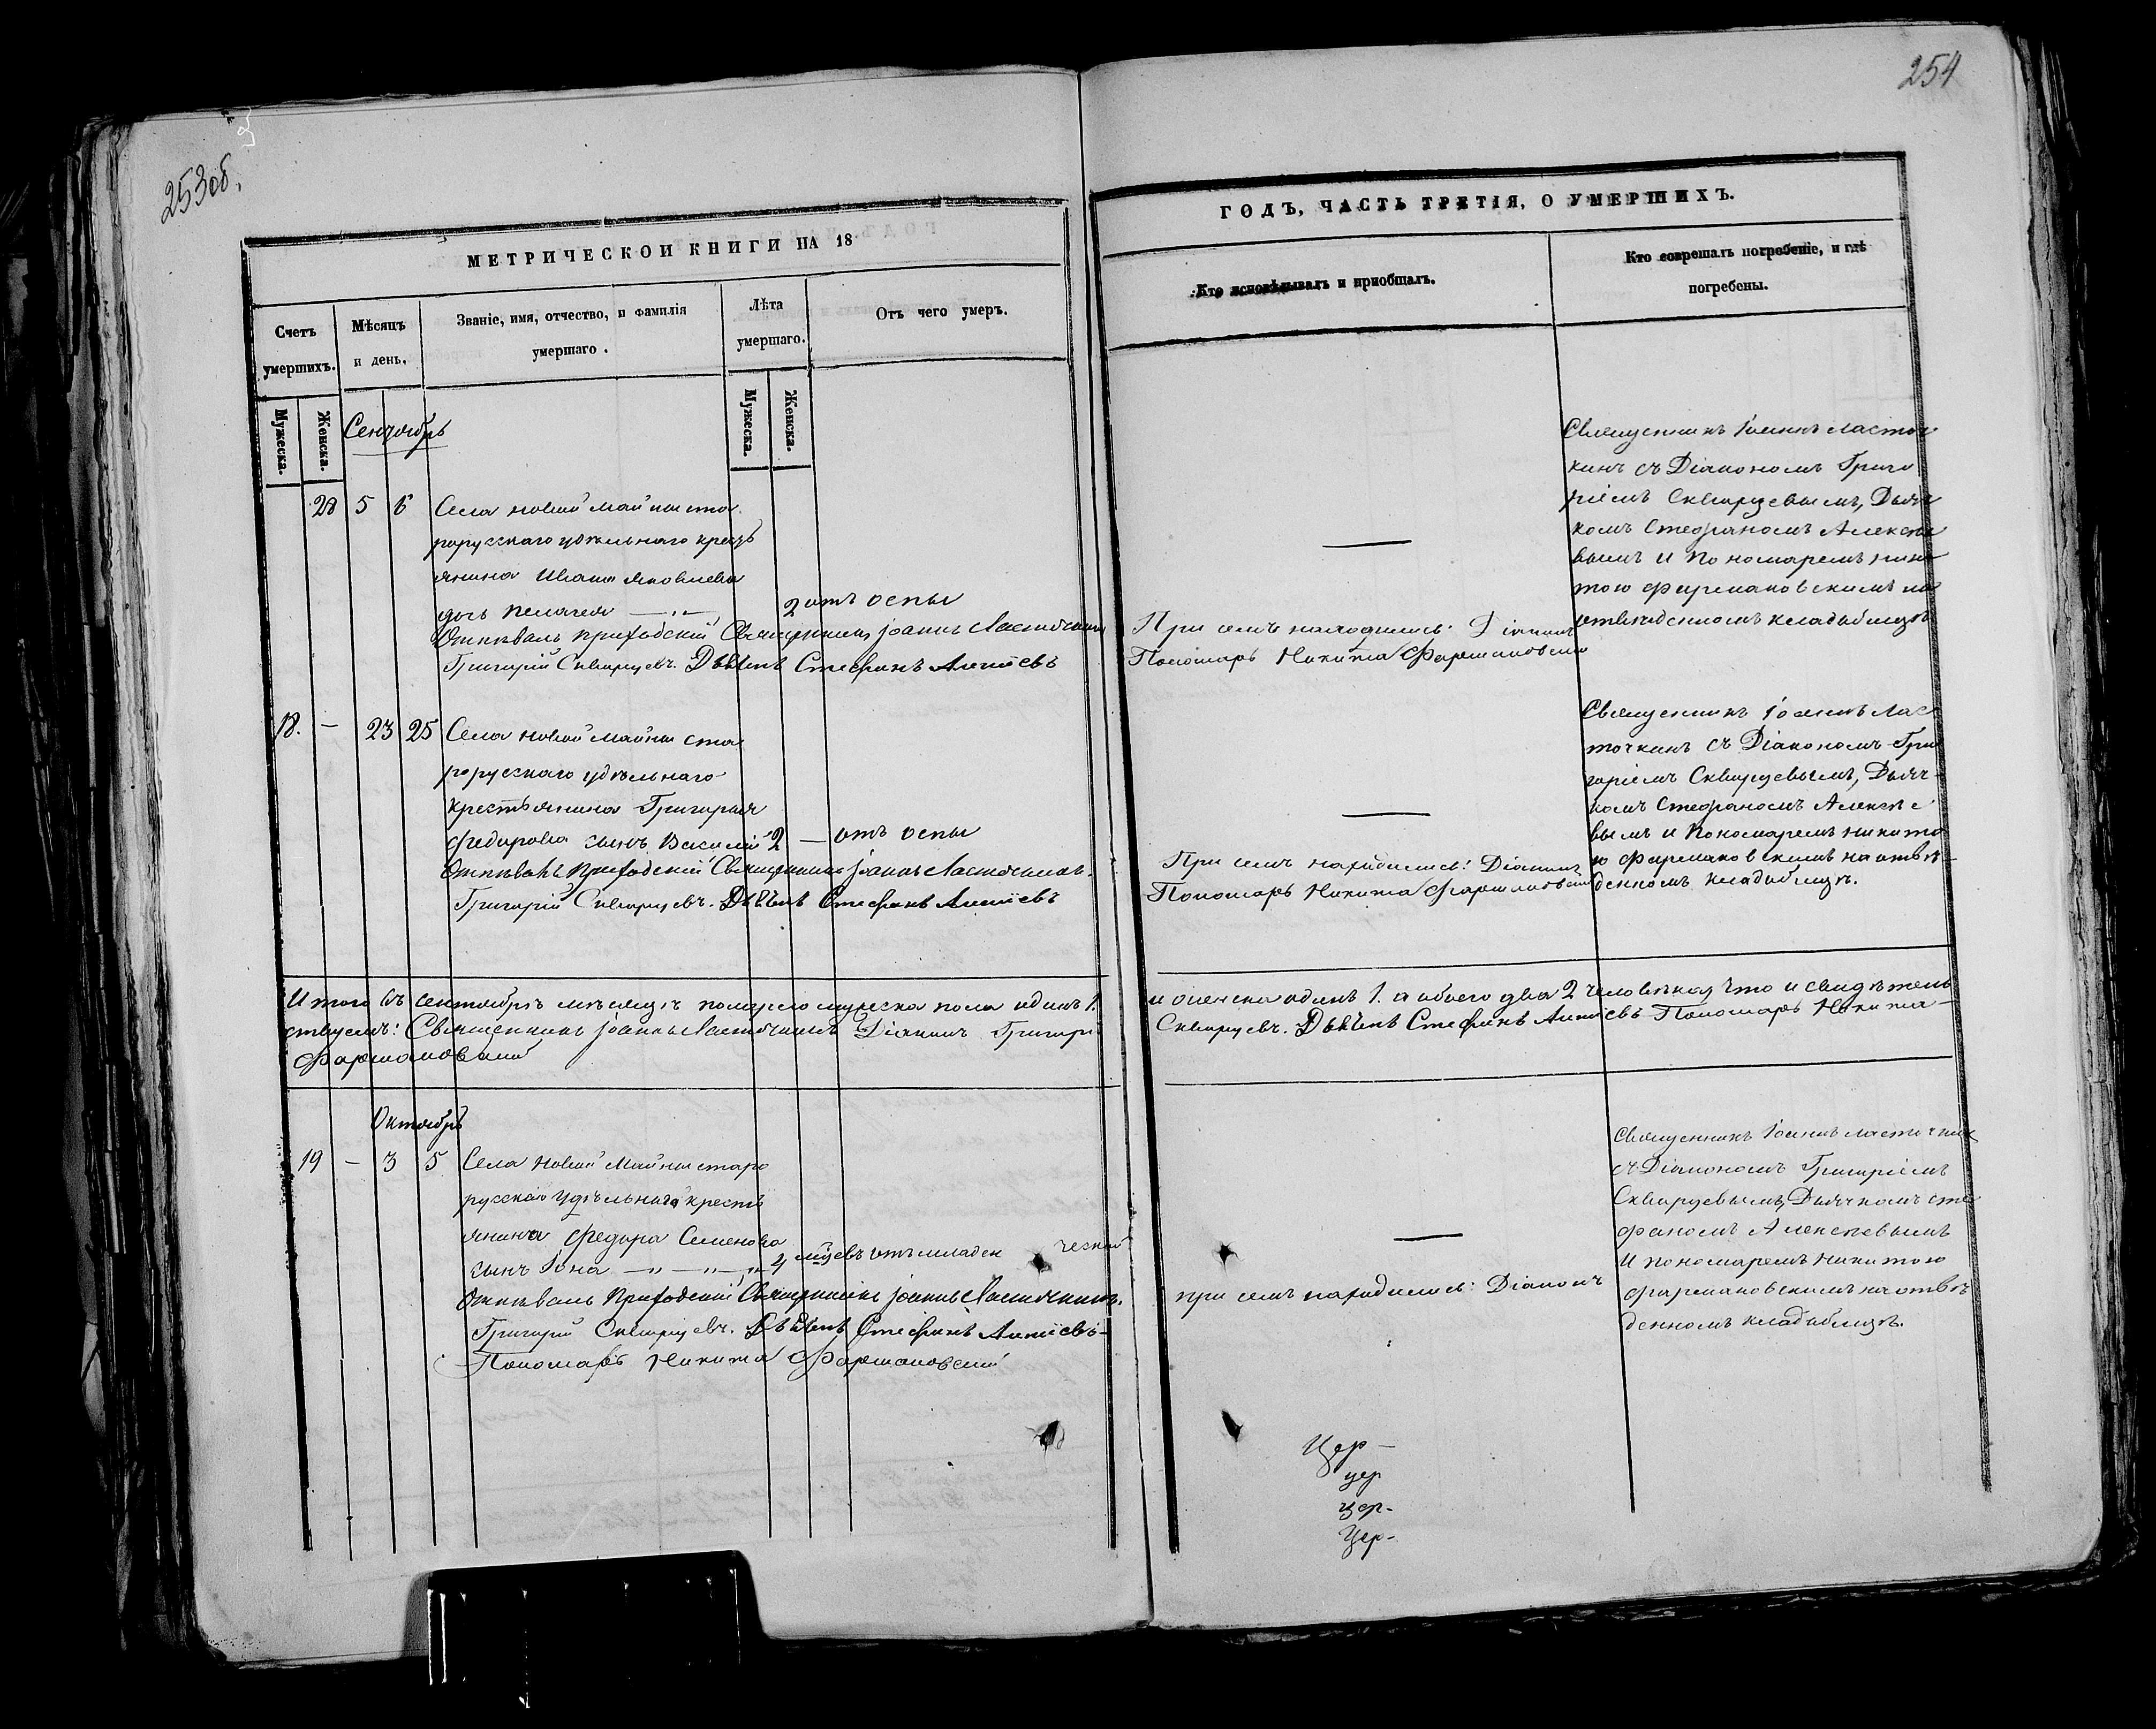 253 об.
254
МЕТРИЧЕСКОЙ КНИГИ НА 18
ГОДЪ, ЧАСТЬ ТРЕТІЯ, О УМЕРШИХЪ.
Счетъ умершихъ.
Мужеска.
Женска.
Мѣсяцъ и день.
Званіе, имя, отчество, и фамилія
умершаго.
Лѣта
умершаго.
Мужеска.
Женска.
Отъ чего умеръ.
Кто исповѣдывалъ и пріобщалъ.
Кто совершалъ погребеніе, и гдѣ
погребены.
Сентябрь
28 5 6 Села Новой Майны ста
рорусскаго удѣльнаго кресть
янина Ивана Яковлева
дочь Пелагея — „ — 2 отъ оспы
Отпѣвалъ приходскій Священникъ Іоаннъ Ласточкинъ
При семъ находились: Діаконъ
Григорій Скворцевъ. Дьячекъ Стефанъ Алексіевъ
Пономарь Никита Фармаковскій
Священникъ Іоаннъ Ласточ
кинъ съ Діакономъ Григо
ріемъ Скворцевымъ, Дьяч
комъ Стефаномъ Алексѣе
вымъ и Пономаремъ Ники
тою Фармаковскимъ на
отведенномъ кладбищѣ
18. — 23 25 Села Новой Майны ста
рорусскаго удѣльнаго
крестьянина Григорья
Федорова сынъ Василій 2 — отъ оспы
Отпѣвалъ Приходскій Священникъ Іоаннъ Ласточкинъ.
При семъ находились: Діаконъ
Григорій Скворцевъ. Дьячекъ Стефанъ Алексіевъ
Пономарь Никита Фармаковскій
Священникъ Іоаннъ Лас
точкинъ съ Діакономъ Гри
горіемъ Скворцевымъ, Дьяч
комъ Стефаномъ Алексѣе
вымъ и Пономаремъ Никито
ю Фармаковскимъ на отве
денномъ кладбищѣ.
Итого въ сентябрѣ мѣсяцѣ померло мужеска пола одинъ 1. и женска одинъ 1. а обоего два 2 человѣка, что и свидѣтель
ствуемъ: Священникъ Іоаннъ Ласточкинъ Діаконъ Григорій Скворцевъ. Дьячекъ Стефанъ Алексіевъ Пономарь Никита
Фармаковскій
Октябрь
19 — 3 5 Села Новой Майны старо
русскаго удѣльнаго кресть
янина Федора Семенова
сынъ Іона — „ — „ — „ 4 мѣсяцевъ отъ младенческой
Отпѣвалъ Приходскій Священникъ Іоаннъ Ласточкинъ.
при семъ находились: Діаконъ
Григорій Скворцевъ. Дьячекъ Стефанъ Алексіевъ
Пономарь Никита Фармаковскій
Священникъ Іоаннъ Ласточкинъ
съ Діакономъ Григоріемъ
Скворцевымъ, Дьячкомъ Сте
фаномъ Алексѣевымъ
и пономаремъ Никитою
Фармаковскимъ на отве
денномъ кладбищѣ.
Цер —
цер
цер-
Цер-